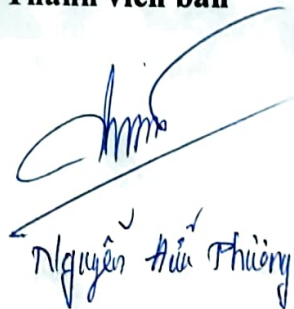 Thành viên ban
Nguyễn Hữu Phương